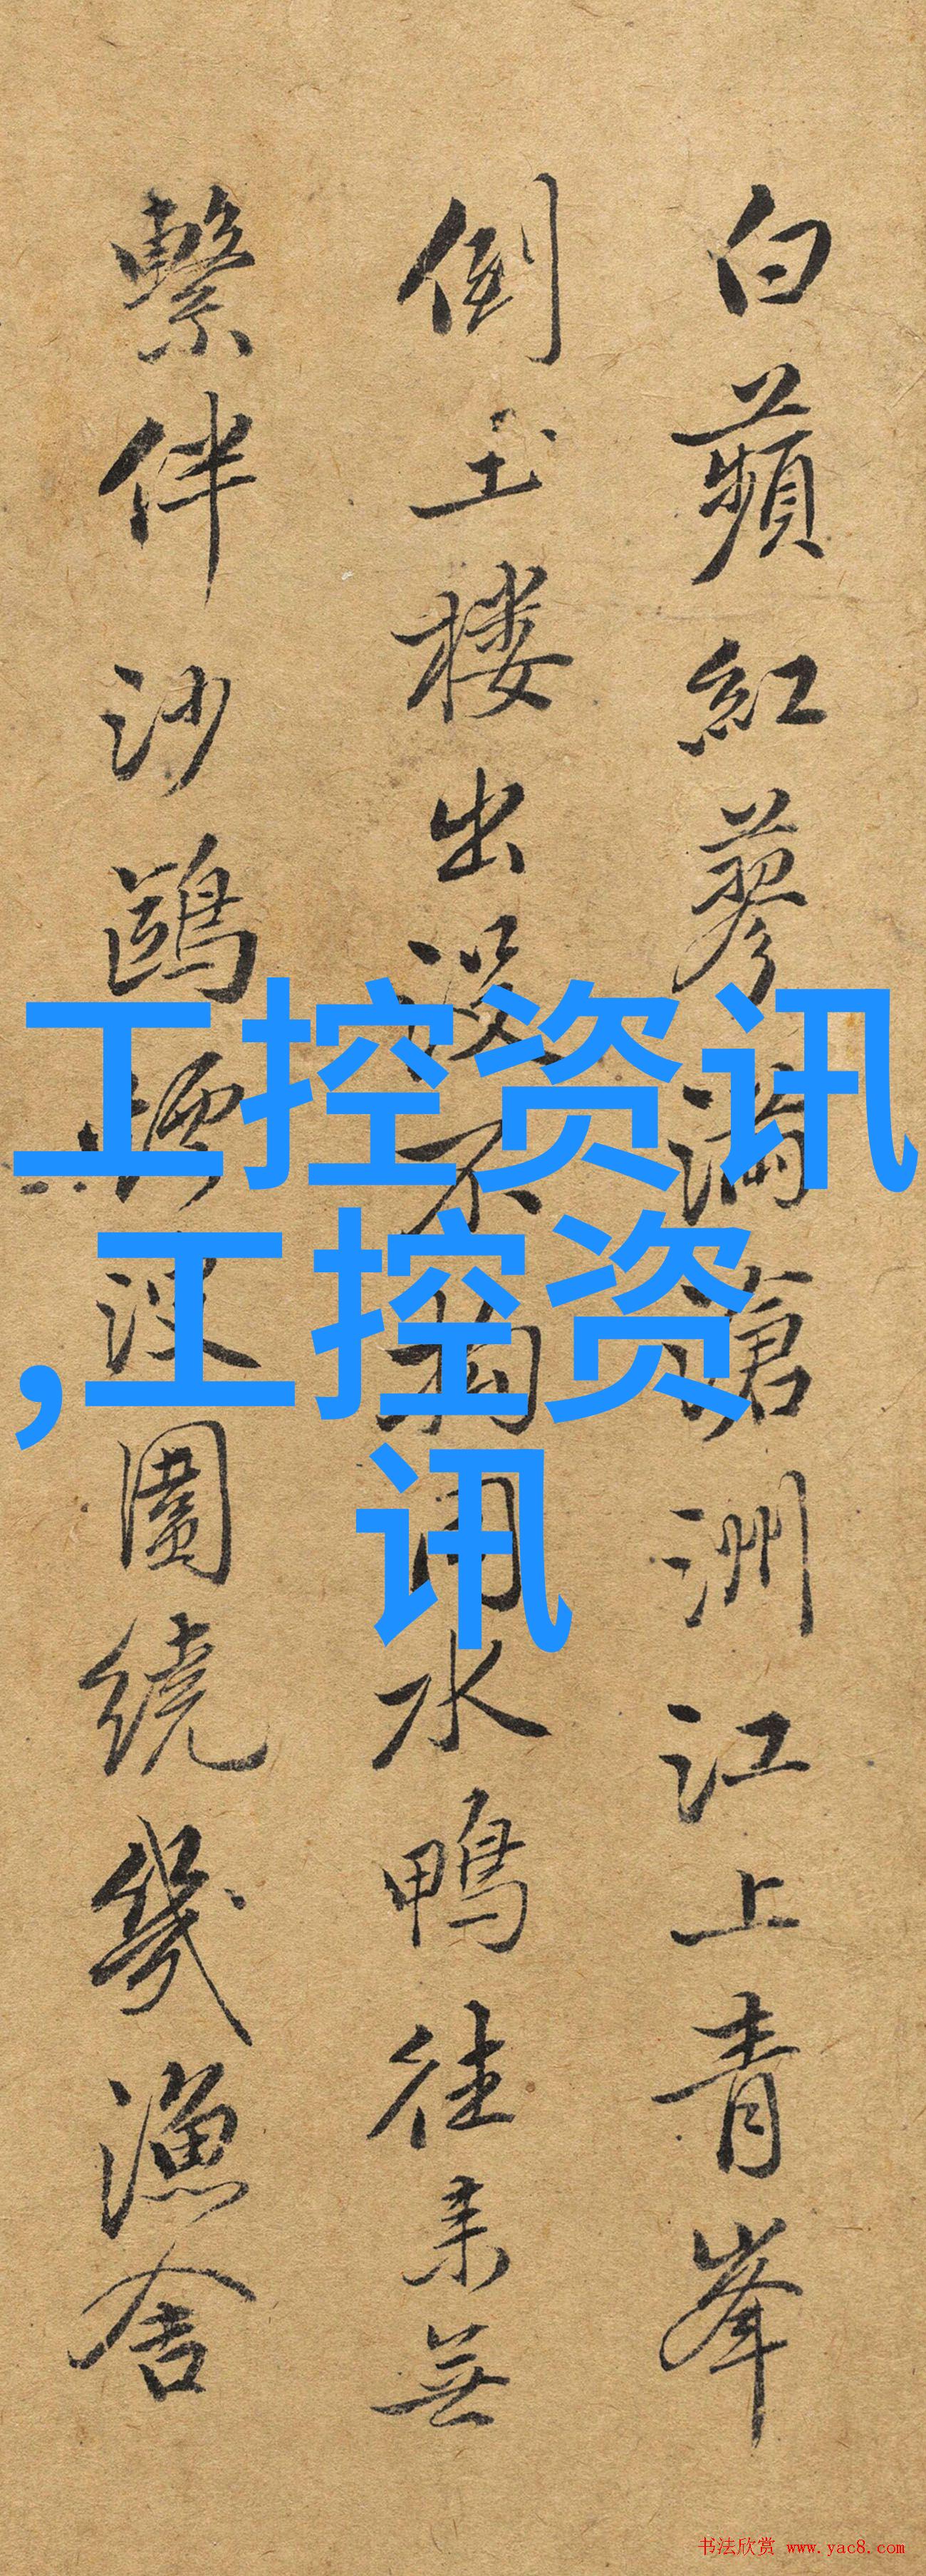 白蘋紅蓼滿滄洲江上青峯
倒玉楼出没不拘水鴨往来無
繫伴沙鷗煙波圍繞幾漁舍
工控资讯
,工控资
讯
书法欣赏 www.yac8.com